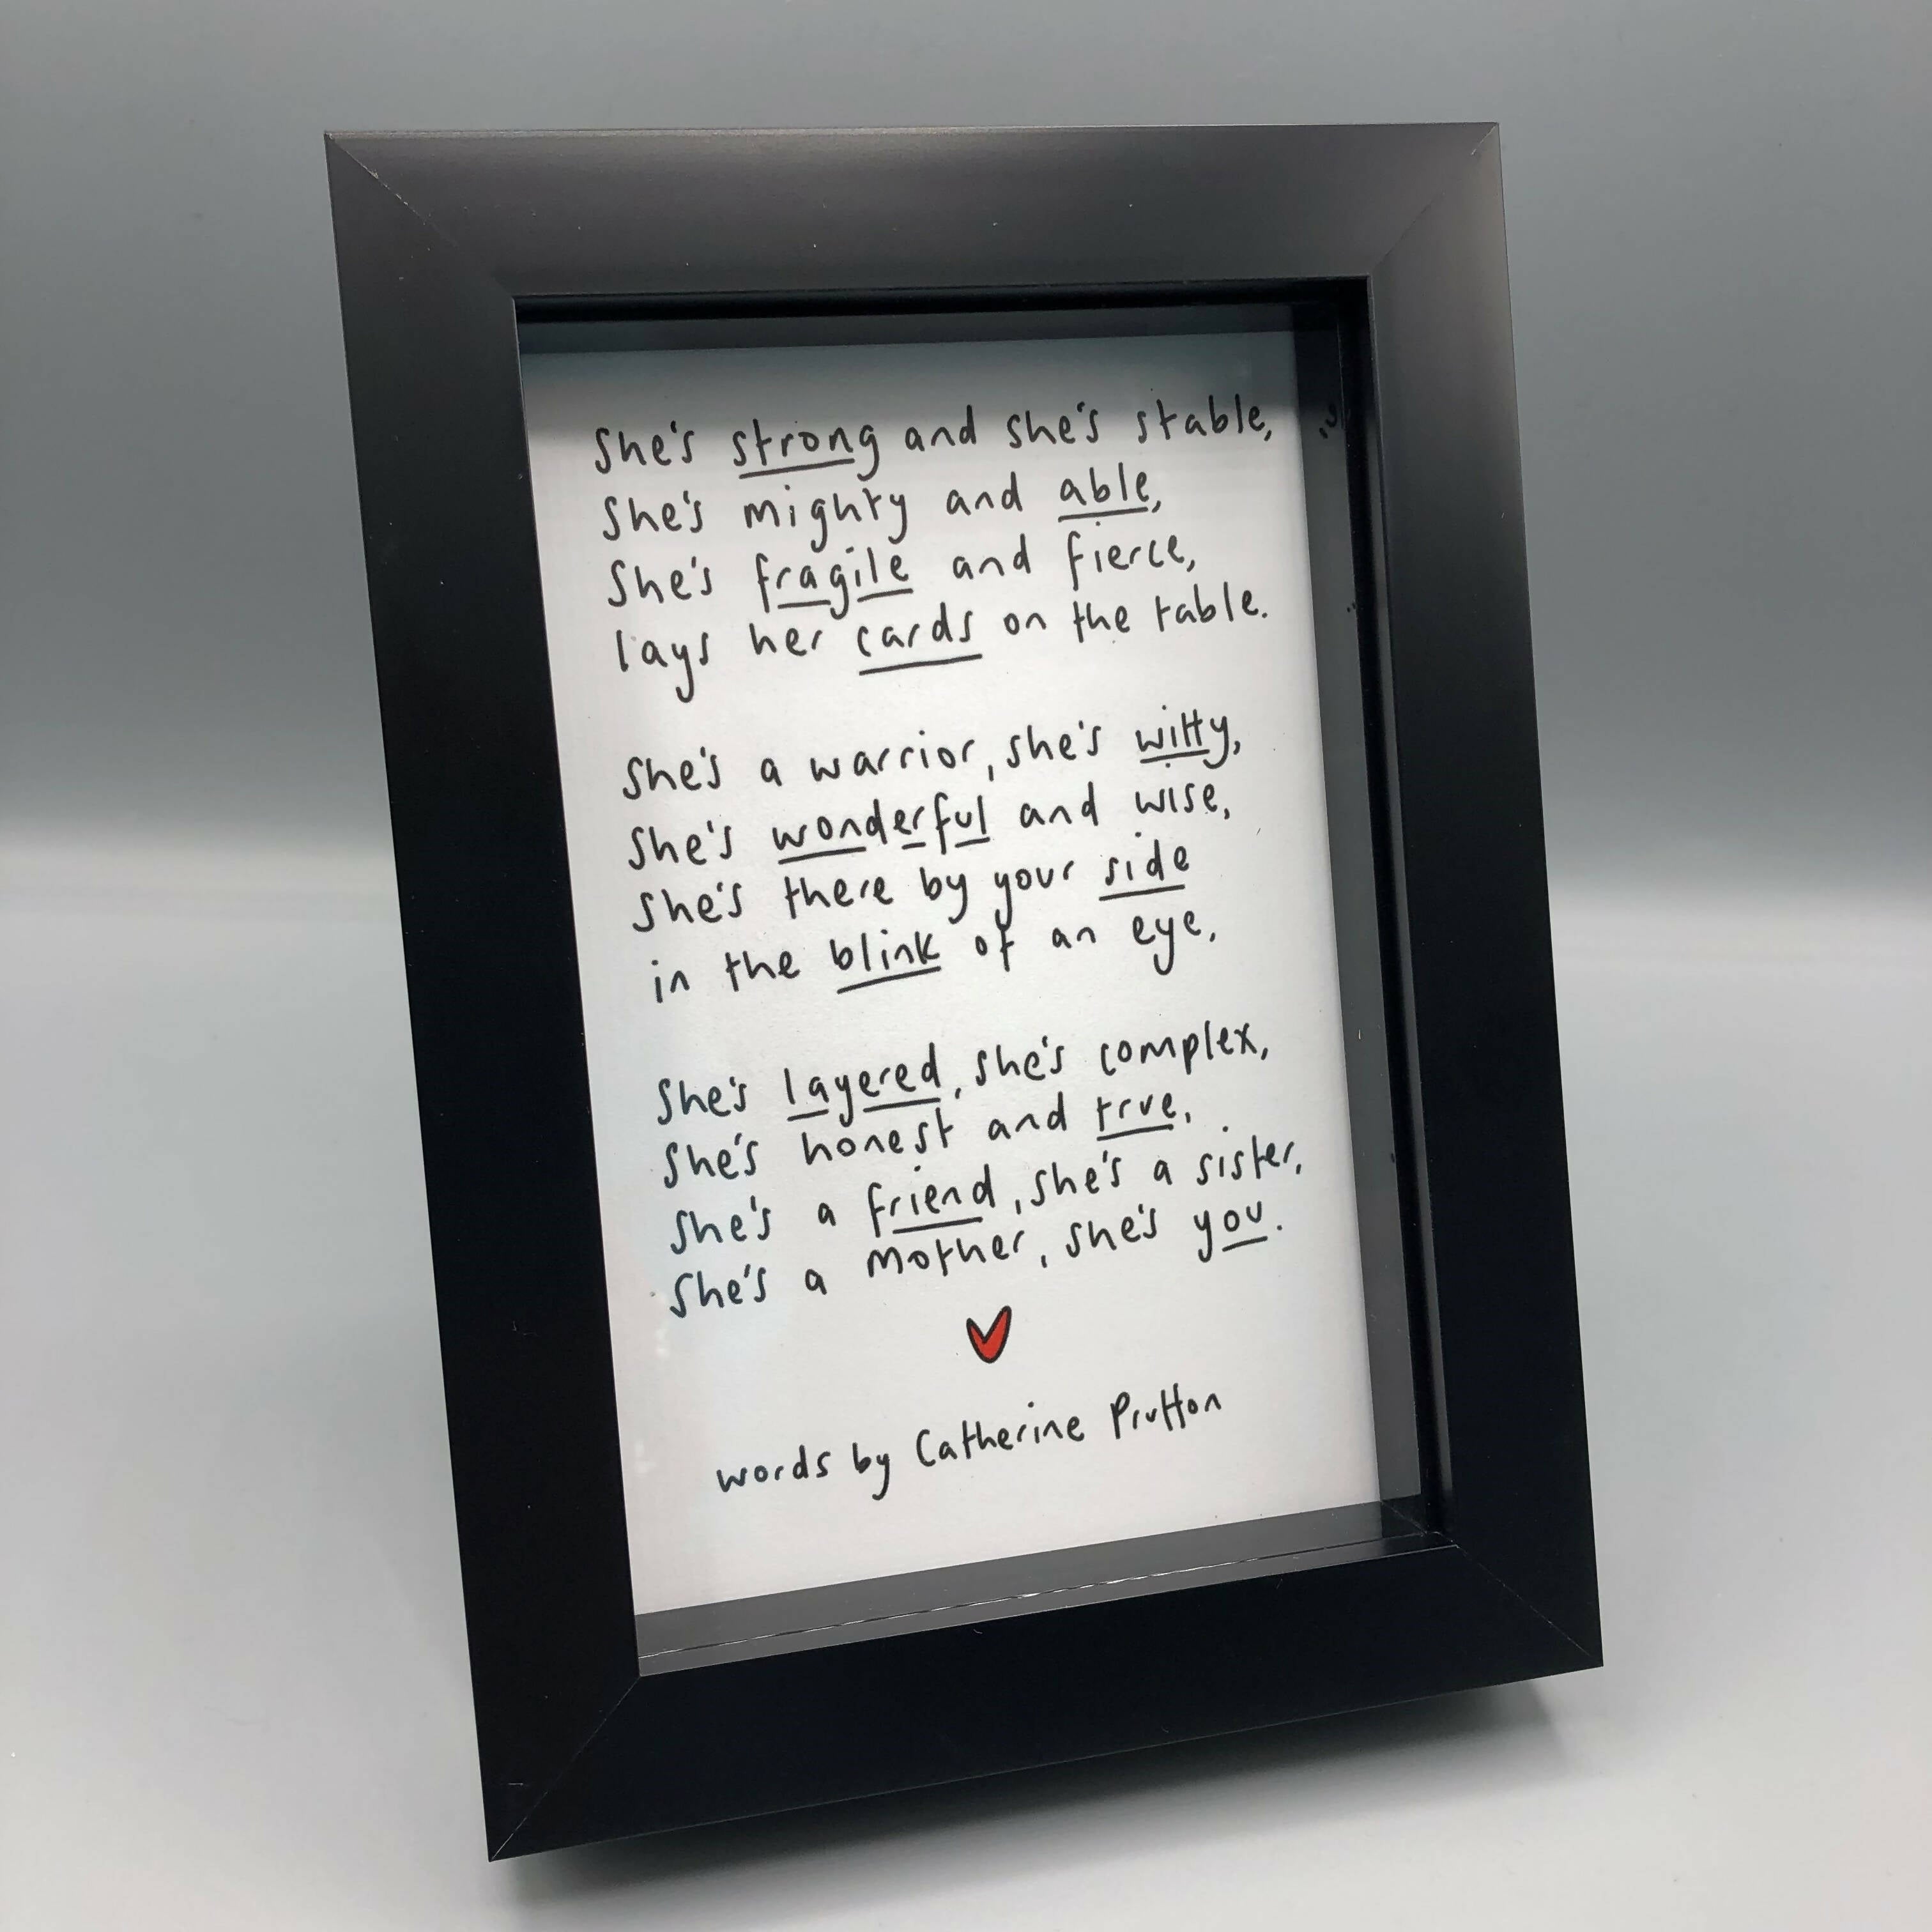 She's strong and she's stable,
She's mighty and able,
She's fragile and fierce,
lays her cards on the table.
She's a warrior, she's witty,
She's wonderful and wise,
She's there by your side
in the blink of an eye.
She's layered, she's complex,
She's honest and true,
She's a friend, she's a sister,
She's a mother, she's you.
words by Catherine Prutton